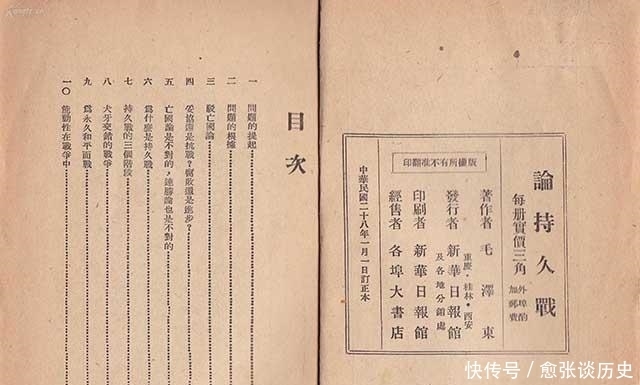 論持久戰
每册實價三角
外埠酌加郵費
著作者 毛澤東
發行者 新華日報館
重慶・桂林・西安
及各地分銷處
印刷者 新華日報館
經售者 各埠大書店
版權所有不准翻印
中華民國二十八年一月一日訂正本
目次
一 問題的提起
二 問題的根據
三 駁亡國論
四 妥協還是抗戰？腐敗還是進步？
五 亡國論是不對的，速勝論也是不對的
六 爲什麽是持久戰
七 持久戰的三個階段
八 犬牙交錯的戰爭
九 爲永久和平而戰
一〇 能動性在戰爭中
快传号／愈张谈历史